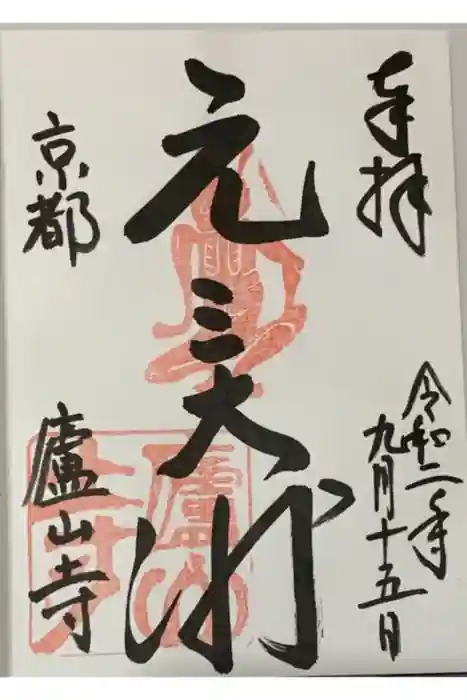 奉拝
令和二年
九月十五日
元三大師
京都
廬山寺
廬山寺